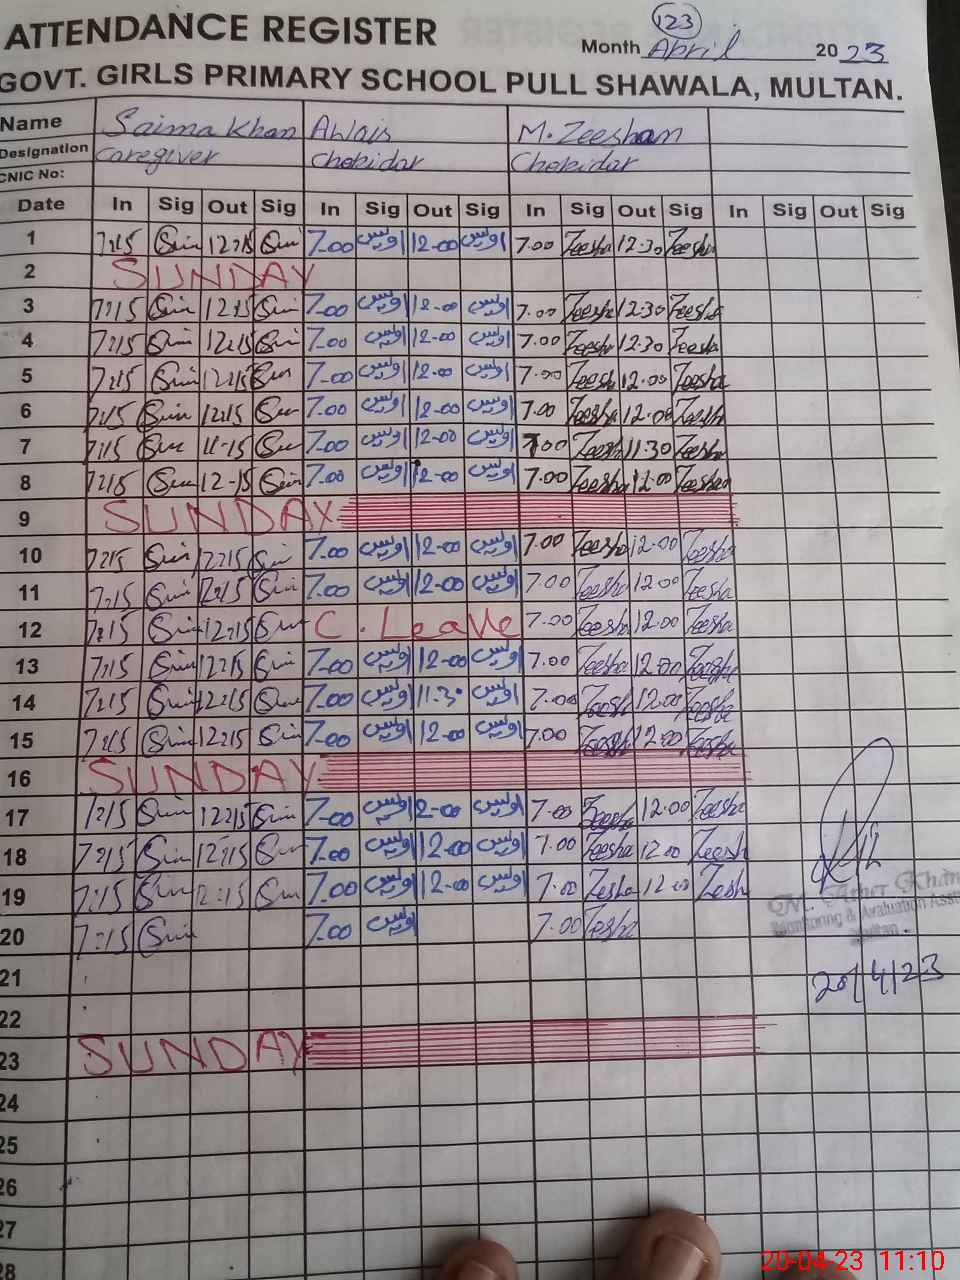 123
ATTENDANCE REGISTER
Month April 2023
GOVT. GIRLS PRIMARY SCHOOL PULL SHAWALA, MULTAN.
Name Saima Khan Awais M. Zeeshan
Designation Caregiver Chokidar Chokidar
CNIC No:
Date In Sig Out Sig In Sig Out Sig In Sig Out Sig In Sig Out Sig
1 7:15 12:15 7-00 اویس 12-00 اویس 7.00 Zeesha 12.30 Zeesha
2 SUNDAY
3 7:15 12:15 7-00 اویس 12-00 اویس 7.00 Zeesha 12.30 Zeesha
4 7:15 12:15 7-00 اویس 12-00 اویس 7.00 Zeesha 12.30 Zeesha
5 7:15 12:15 7-00 اویس 12-00 اویس 7.00 Zeesh 12.00 Zeesha
6 7:15 12:15 7-00 اویس 12-00 اویس 7.00 Zeesha 12.00 Zeesh
7 7:15 11-15 7-00 اویس 12-00 اویس 7.00 Zeesh 11.30 Zeesha
8 7:15 12-15 7-00 اویس 12-00 اویس 7.00 Zeesha 12.00 Zeesha
9 SUNDAY
10 7:15 12:15 7-00 اویس 12-00 اویس 7.00 Zeesha 12.00 Zeesha
11 7:15 12:15 7-00 اویس 12-00 اویس 7.00 Zeesha 12.00 Zeesha
12 7:15 12:15 C. Leave 7.00 Zeesha 12.00 Zeesha
13 7:15 12:15 7-00 اویس 12-00 اویس 7.00 Zeesha 12.00 Zeesha
14 7:15 12:15 7-00 اویس 11.30 اویس 7.00 Zeesh 12.00 Zeesha
15 7:15 12:15 7-00 اویس 12-00 اویس 7.00 Zeesha 12.00 Zeesha
16 SUNDAY
17 7:15 12:15 7-00 اویس 12-00 اویس 7.00 Zeesha 12.00 Zeesha
18 7:15 12:15 7-00 اویس 12-00 اویس 7.00 Zeesha 12.00 Zeesh
19 7:15 12:15 7-00 اویس 12-00 اویس 7.00 Zesha 12.00 Zesh
20 7:15 7-00 اویس 7.00 Zesha
Khan
Monitoring & Avaluation Asst
Multan
21
20/4/23
22
23 SUNDAY
24
25
26
27
28
20-04-23 11:10